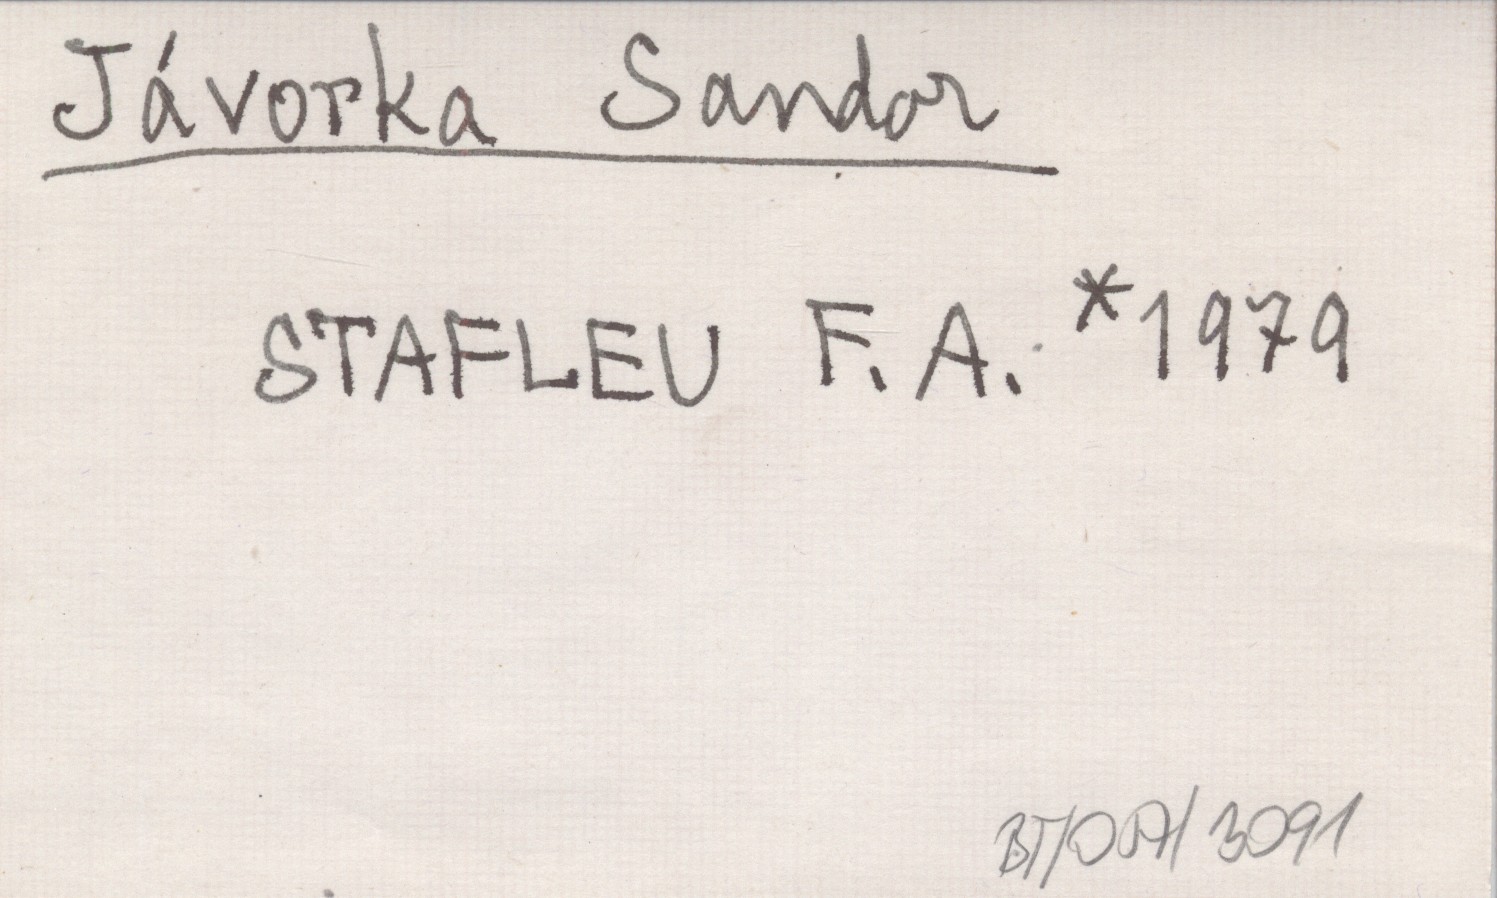 Jávorka Sandor
STAFLEU F. A. *1979
BT/OA/3091